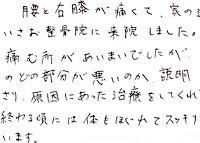 腰と右膝が痛くて、家の近
いさお整骨院に来院しました。
痛む所があいまいでしたが、
のどの部分が悪いのか、説明
さり、原因にあった治療をしてくれ
終わる頃には体もほぐれてスッキリ
います。